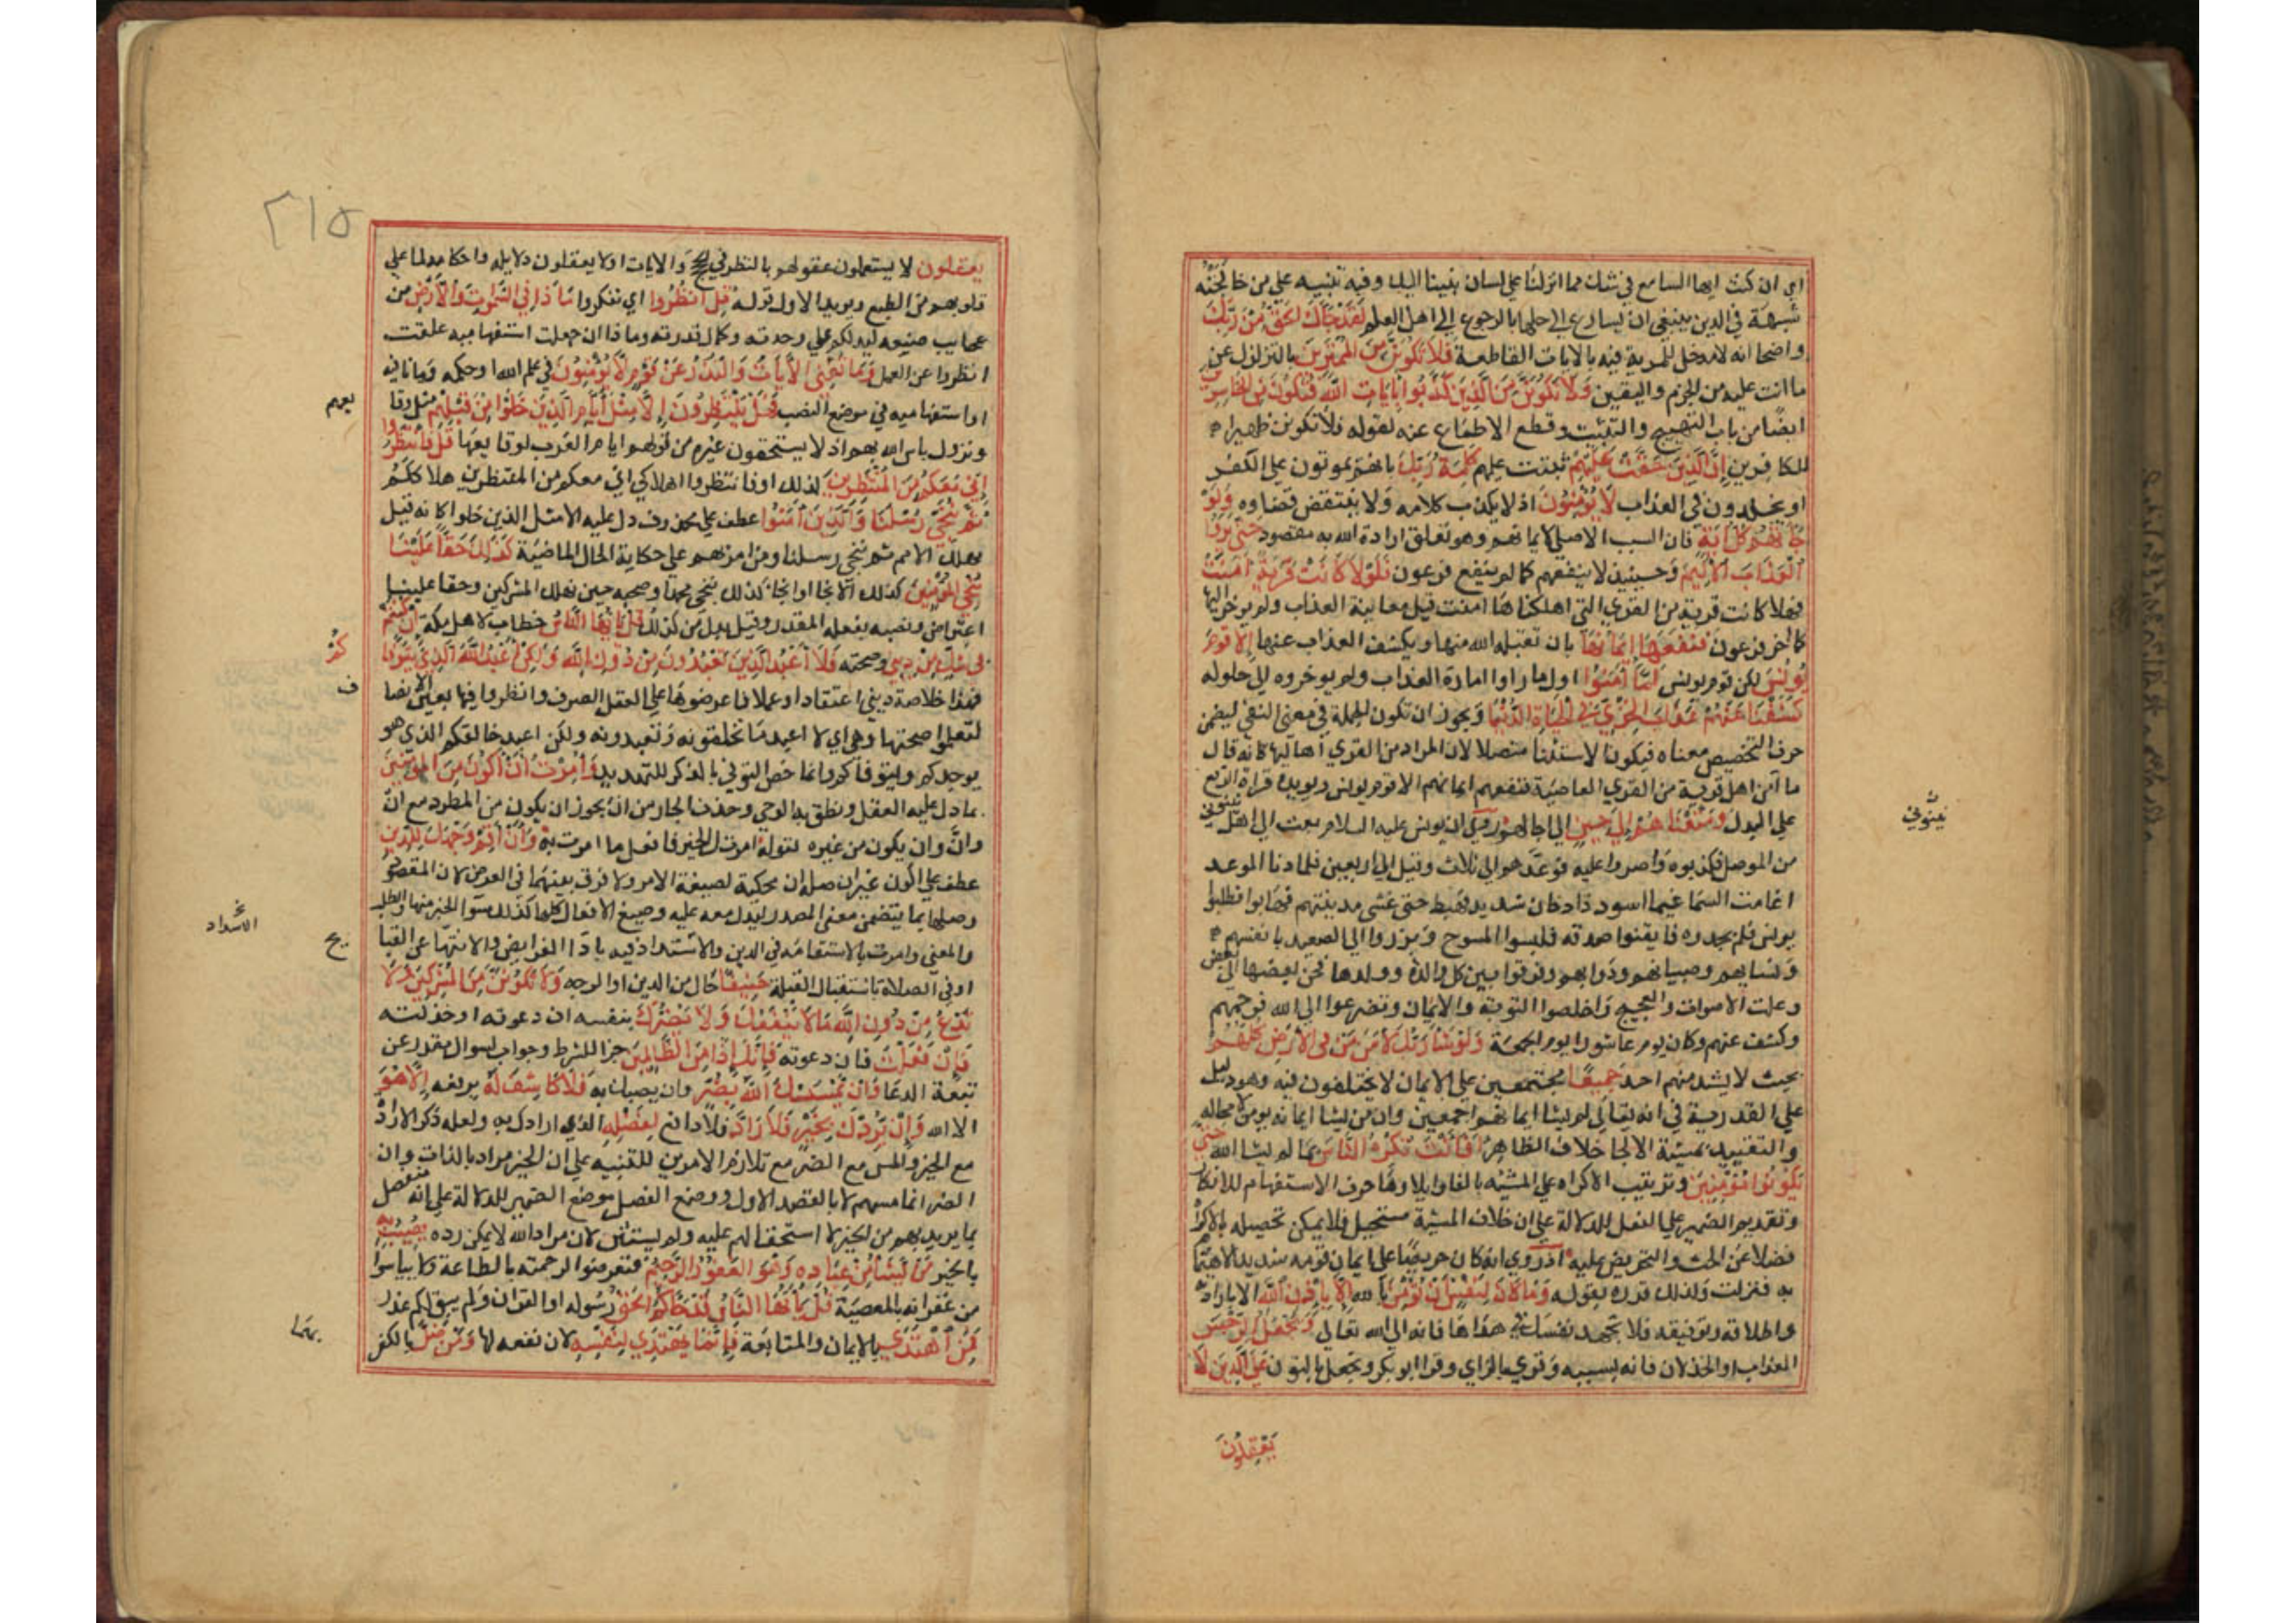 اي ان كنت ايها السامع في شك مما انزلنا على لسان نبينا اليك وفيه تنبيه على من خالجته
شبهة في الدين ينبغي ان يسارع الى حلها بالرجوع الى اهل العلم لقد جاك الحق من ربك
واضحا انه لا مدخل للمرية فيه بالايات القاطعة فلا تكونن من الممترين بالتزلزل عن
ما انت عليه من الجزم واليقين ولا تكونن من الذين كذبوا بايات الله فتكون من الخاسرين
ايضا من باب التهييج والتثبيت وقطع الاطماع عنه لقوله فلا تكونن ظهيرا
للكافرين ان الذين حقت عليهم ثبتت عليهم كلمة ربك بانهم يموتون على الكفر
او يخلدون في العذاب لا يؤمنون اذ لا يكذب كلامه ولا ينتقض قضاوه ولو
جاتهم كل اية فان السبب الاصلي لايمانهم وهو تعلق ارادة الله به مفقود حتى يروا
العذاب الاليم وحينيذ لا ينفعهم كما لم ينفع فرعون فلولا كانت قرية امنت
فهلا كانت قرية من القرى التي اهلكناها امنت قبل معاينة العذاب ولم يوخر اليها
كما اخر فرعون فنفعها ايمانها بان تقبله الله منها ويكشف العذاب عنها الا قوم
يونس لكن قوم يونس لما امنوا اول ما راوا امارة العذاب ولم يوخروه الى حلوله
كشفنا عنهم عذاب الخزي في الحياة الدنيا ويجوز ان تكون الجملة في معنى النفي ليضمن
حرف التخصيص معناه فيكون الاستثنا متصلا لان المراد من القرى اهاليها كانه قال
ما امن اهل قرية من القرى العاصية فنفعهم ايمانهم الا قوم يونس ويويده قراة الرفع
على البدل ومتعناهم الى حين الى اجالهم روي ان يونس عليه السلام بعث الى اهل نينوى
نينوي
من الموصل فكذبوه واصروا عليه فوعدهم الى ثلاث وقيل الى اربعين فلما دنا الموعد
اغامت السما غيما اسود ذا دخان شديد فهبط حتى غشى مدينتهم فهابوا فطلبوا
يونس فلم يجدوه فايقنوا صدقه فلبسوا المسوح وبرزوا الى الصعيد بانفسهم
ونسايهم وصبيانهم ودوابهم وفرقوا بين كل والدة وولدها فحن بعضها الى بعض
وعلت الاصوات والعجيج واخلصوا التوبة والايمان وتضرعوا الى الله فرحمهم
وكشف عنهم وكان يوم عاشورا يوم الجمعة ولو شا ربك لامن من في الارض كلهم
بحيث لا يشذ منهم احد جميعا مجتمعين على الايمان لا يختلفون فيه وهو دليل
على القدرية في انه تعالى لم يشا ايمانهم اجمعين وان من يشا ايمانه يومن لا محالة
والتقييد بمشية الالجا خلاف الظاهر افانت تكره الناس بما لم يشا الله حتى
يكونوا مؤمنين وترتيب الاكراه على المشية بالفا وايلاوها حرف الاستفهام للانكار
وتقديم الضمير على الفعل للدلالة على ان خلاف المشية مستحيل فلا يمكن تحصيله بالاكراه
فضلا عن الحث والتحريض عليه اذ روي انه كان حريصا على ايمان قومه شديد الاهتمام
به فنزلت ولذلك قرره بقوله وما كان لنفس ان تؤمن بالله الا باذن الله الا بارادته
واطلاقه وتوفيقه فلا تجهد نفسك في هداها فانه الى الله تعالى ويجعل الرجس
العذاب او الخذلان فانه بسببه وقري بالزاي وقرا ابو بكر ونجعل بالنون على الذين لا
يعقلون
٢١٥
يعقلون لا يستعملون عقولهم بالنظر في الحجج والايات او لا يعقلون دلايله واحكامه لما على
قلوبهم من الطبع ويويد الاول قوله قل انظروا اي تفكروا ماذا في السموات والارض من
عجايب صنيعه ليدلكم على وحدته وكمال قدرته وماذا ان جعلت استفهامية علقت
انظروا عن العمل وما تغني الايات والنذر عن قوم لا يؤمنون في علم الله او حكمه وما نافية
او استفهامية في موضع النصب فهل ينتظرون الا مثل ايام الذين خلوا من قبلهم مثل وقا
يعهم
ونزول باس الله بهم اذ لا يستحقون غيره من قولهم ايام العرب لوقايعها قل فانتظروا
اني معكم من المنتظرين لذلك او فانتظروا اهلاكي اني معكم من المنتظرين هلاككم
ثم ننجي رسلنا والذين امنوا عطف على محذوف دل عليه الا مثل الذين خلوا كانه قيل
نهلك الامم ثم ننجي رسلنا ومن امن بهم على حكاية الحال الماضية كذلك حقا علينا
ننجي المؤمنين كذلك الانجا او انجا كذلك ننجي محمدا وصحبه حين نهلك المشركين وحقا علينا
اعتراض ونصبه بفعله المقدر وقيل بدل من كذلك قل يا ايها الناس خطاب لاهل مكة ان كنتم
في شك من ديني وصحته فلا اعبد الذين تعبدون من دون الله ولكن اعبد الله الذي يتوفا
كم
فهذا خلاصة ديني اعتقادا وعملا فاعرضوها على العقل الصرف وانظروا فيها بعين الانصا
ف
لتعلموا صحتها وهو اي لا اعبد ما تخلقونه وتعبدونه ولكن اعبد خالقكم الذي هو
يوجدكم ويتوفاكم وانما خص التوفي بالذكر للتهديد وامرت ان اكون من المؤمنين
بما دل عليه العقل ونطق به الوحي وحذف الجار من ان يجوز ان يكون من المطرد مع ان
وان وان يكون من غيره لقوله امرتك الخير فافعل ما امرت به وان اقم وجهك للدين
عطف على ان اكون غير ان صلة ان محكية لصيغة الامر ولا فرق بينهما في الغرض لان المقصود
وصلها بما يتضمن معنى المصدر ليدل معه عليه وصيغ الافعال كلها كذلك سوا الخبر منها والطلب
والمعنى وامرت بالاستقامة في الدين والاشتداد فيه باداا الفرايض والانتها عن القبا
يح
الاسداد
او في الصلاة باستقبال القبلة حنيفا حال من الدين او الوجه ولا تكونن من المشركين ولا
تدع من دون الله ما لا ينفعك ولا يضرك بنفسه ان دعوته او خذلته
فان فعلت فان دعوته فانك اذا من الظالمين جزا للشرط وجواب لسوال مقدر عن
تبعة الدعا وان يمسسك الله بضر وان يصبك به فلا كاشف له يرفعه الا هو
الا الله وان يردك بخير فلا راد فلا دافع لفضله الذي ارادك به ولعله ذكر الارادة
مع الخير والمس مع الضر مع تلازم الامرين للتنبيه على ان الخير مراد بالذات وان
الضر انما مسهم لا بالقصد الاول ووضع الفضل موضع الضمير للدلالة على انه متفضل
بما يريد بهم من الخير لا استحقاق لهم عليه ولم يستثن لان مراد الله لا يمكن رده يصيب به
بالخير من يشا من عباده وهو الغفور الرحيم فتعرضوا لرحمته بالطاعة ولا يياسوا
من غفرانه بالمعصية قل يا ايها الناس قد جاكم الحق رسوله او القران ولم يبق لكم عذر
فمن اهتدى بالايمان والمتابعة فانما يهتدي لنفسه لان نفعه لها ومن ضل بالكفر
بهما